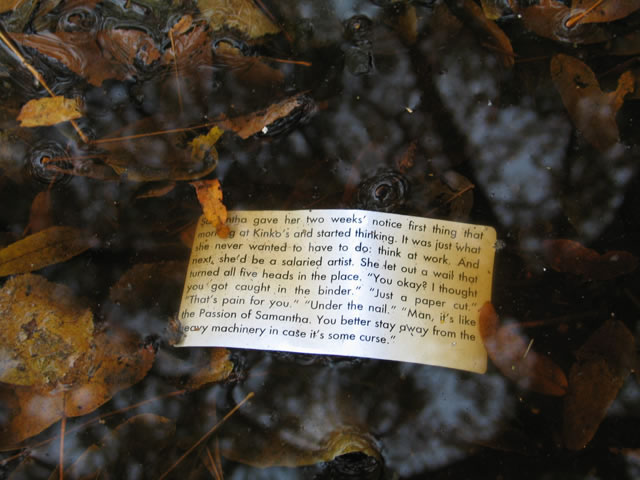 Samantha gave her two weeks' notice first thing that
morning at Kinko's and started thinking. It was just what
she never wanted to have to do: think at work. And
next, she'd be a salaried artist. She let out a wail that
turned all five heads in the place. "You okay? I thought
you got caught in the binder." "Just a paper cut."
"That's pain for you." "Under the nail." "Man, it's like
the Passion of Samantha. You better stay away from the
heavy machinery in case it's some curse."